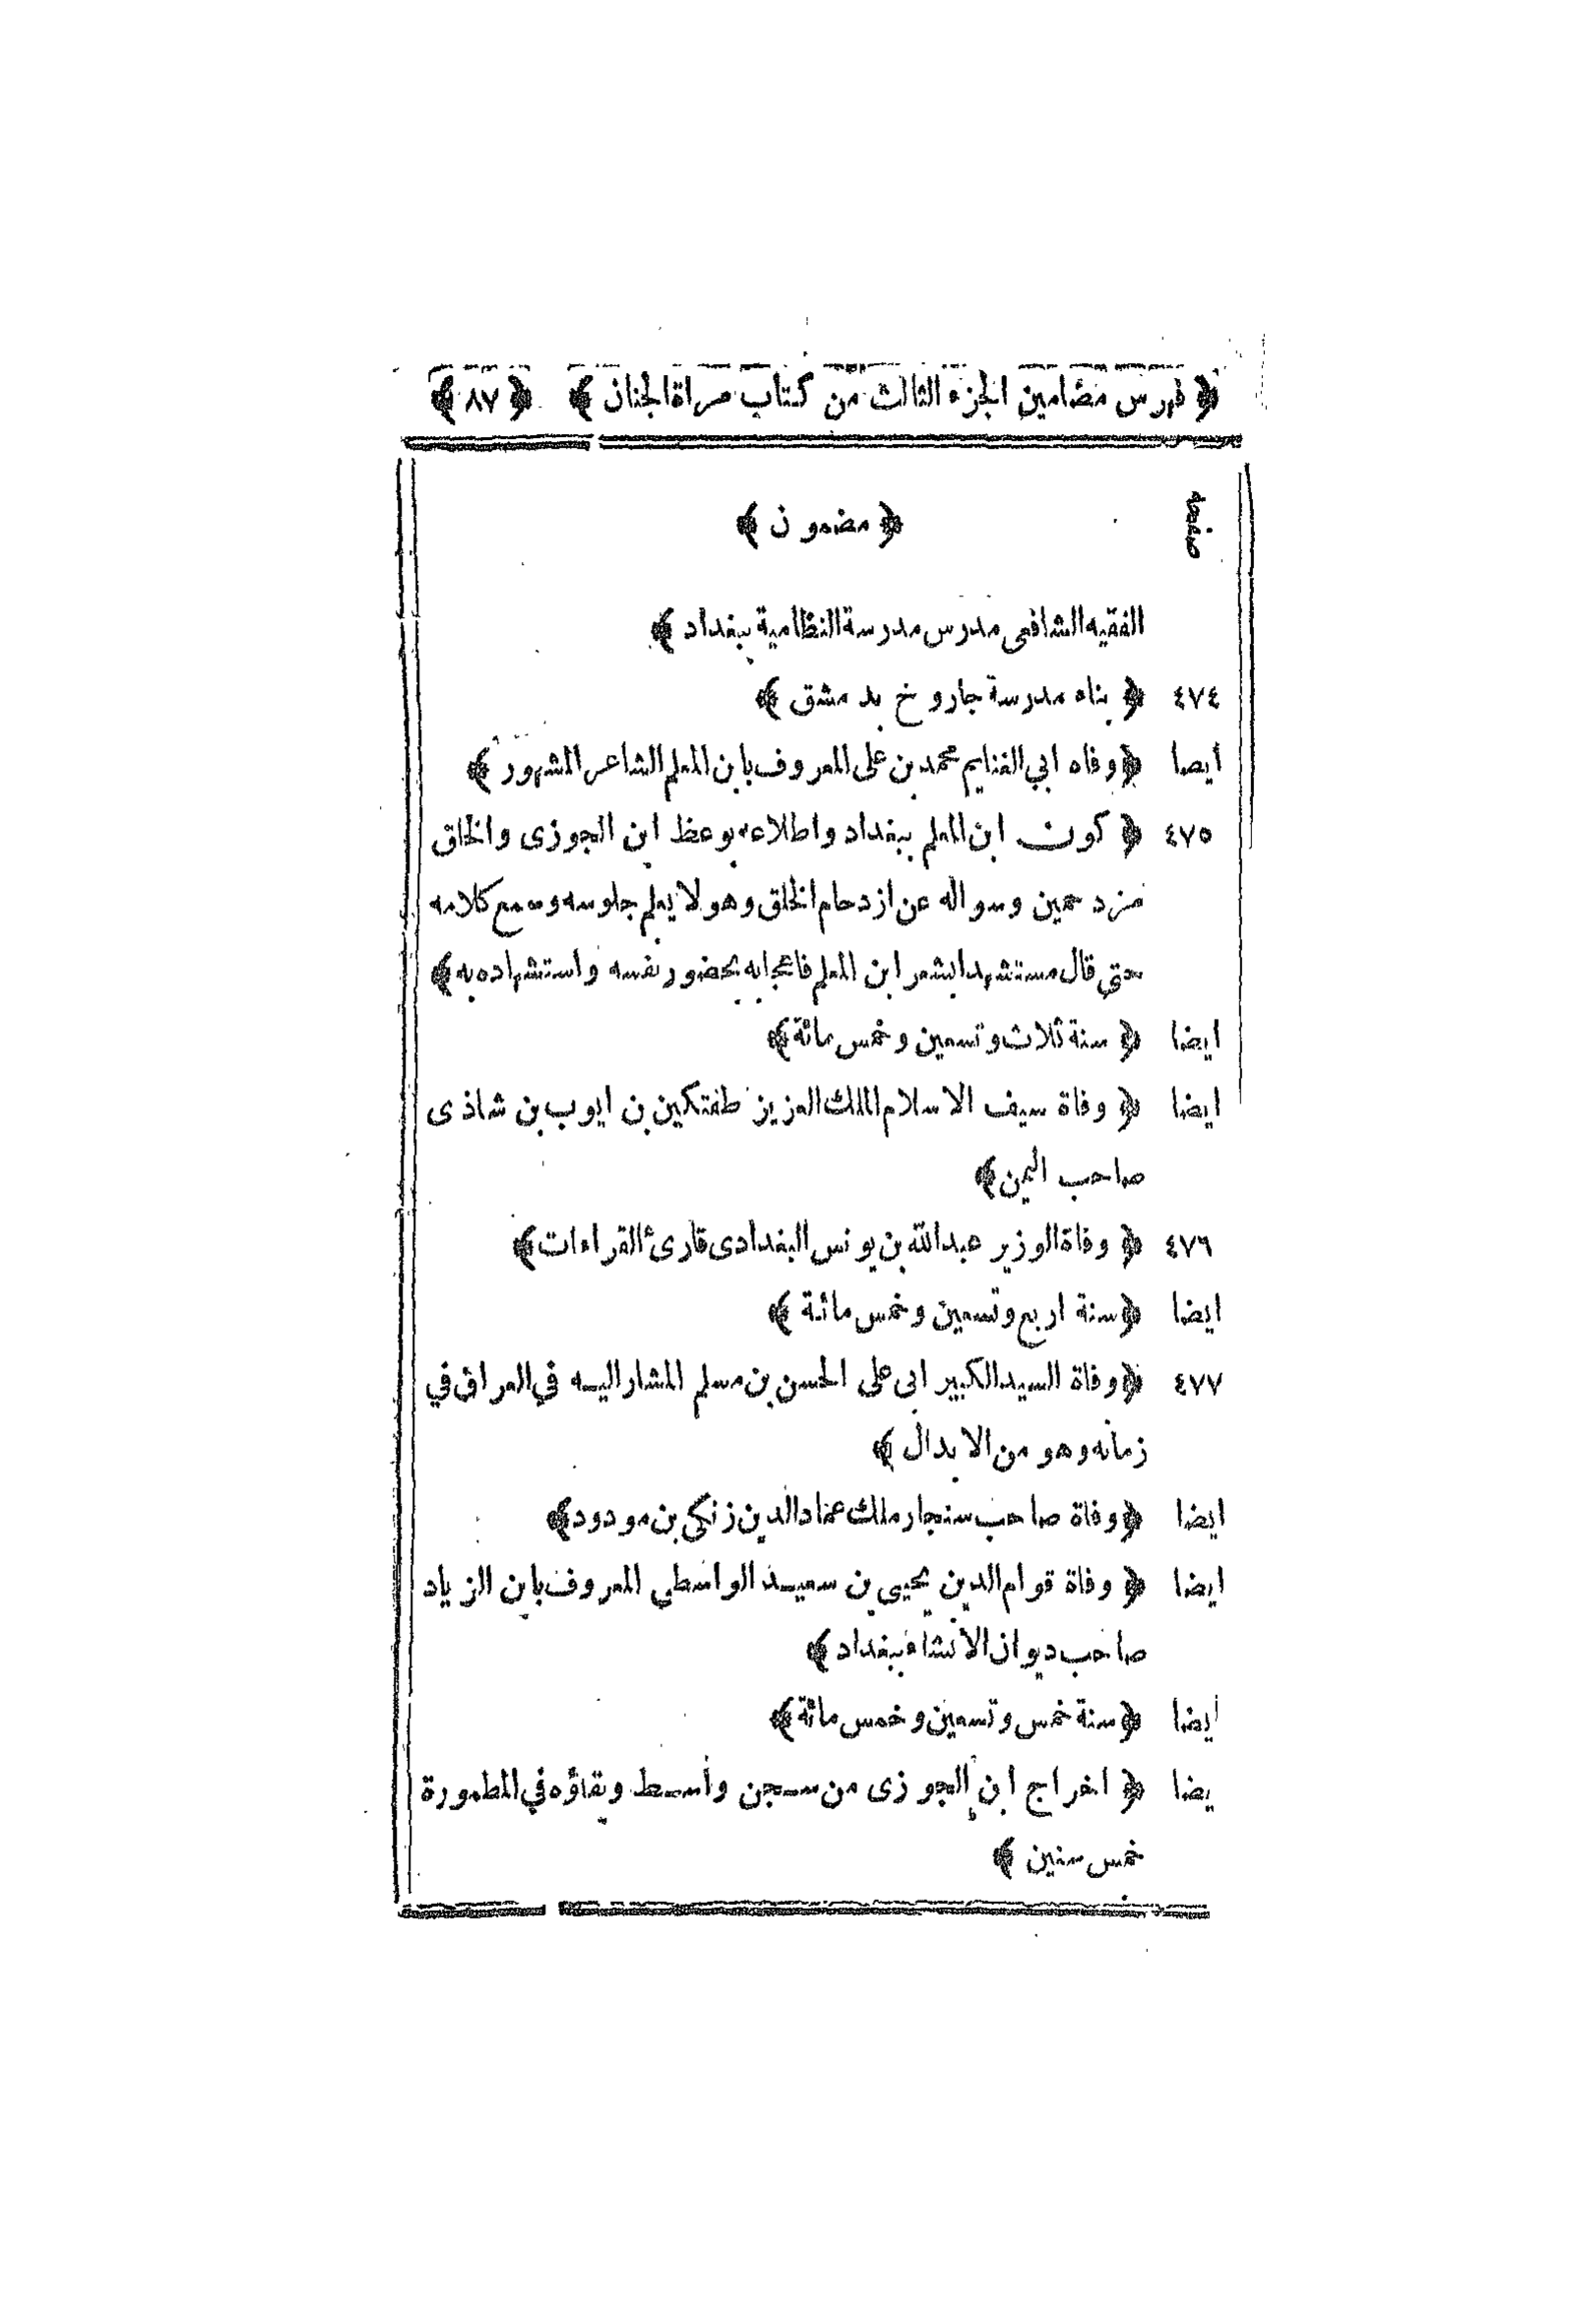 ﴿ فهرس مضامين الجزء الثالث من كتاب مراة الجنان ﴾ ﴿ ٨٧ ﴾
صفحه ﴿ مضمون ﴾
الفقيه الشافعى مدرس مدرسة النظامية ببغداد ﴾
٤٧٤ ﴿ بناء مدرسة جاروخ بدمشق ﴾
أيضا ﴿ وفاه ابي الغنايم محمد بن على المعروف بابن المعلم الشاعر المشهور ﴾
٤٧٥ ﴿ كون ابن المعلم ببغداد واطلاعه بوعظ ابن الجوزى والخلق
مزدحمين وسواله عن ازدحام الخلق وهو لا يعلم جلوسه وسمع كلامه
حتى قال مستشهدا بشعر ابن المعلم فاعجابه بحضور نفسه واستشهاده به ﴾
ايضا ﴿ سنة ثلاث وتسعين وخمس مائة ﴾
ايضا ﴿ وفاة سيف الاسلام الملك العزيز طغتكين بن ايوب بن شاذى
صاحب اليمن ﴾
٤٧٦ ﴿ وفاة الوزير عبد الله بن يونس البغدادى قارئ القراءات ﴾
ايضا ﴿ سنة اربع وتسعين وخمس مائة ﴾
٤٧٧ ﴿ وفاة السيد الكبير ابى على الحسن بن مسلم المشار اليه في العراق في
زمانه وهو من الابدال ﴾
ايضا ﴿ وفاة صاحب سنجار ملك عماد الدين زنكى بن مودود ﴾
ايضا ﴿ وفاة قوام الدين يحيى بن سعيد الواسطى المعروف بابن الزياد
صاحب ديوان الأنشاء ببغداد ﴾
أيضا ﴿ سنة خمس وتسعين وخمس مائة ﴾
يضا ﴿ اخراج ابن الجوزى من سجن واسط وبقاؤه في المطمورة
خمس سنين ﴾